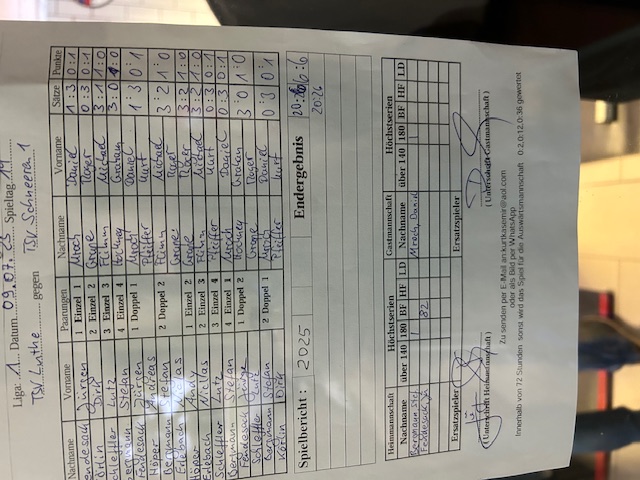 Liga: 1 Datum 09.07.25 Spieltag 14
TSV Luthe gegen TSV Schneeren 1
Nachname Vorname Paarungen Nachname Vorname Sätze Punkte
Jürgen 1 Einzel 1 Mroch Daniel 1:3 0:1
Dirk 2 Einzel 2 Roger 0:3 0:1
Lutz 3 Einzel 3 Michael 3:1 1:0
Stefan 4 Einzel 4 Graham 3:0 1:0
Fendesack Jürgen 1 Doppel 1 Mroch Daniel 1:3 0:1
Höper Andreas Pfeiffer Kurt
Bergmann Stefan 2 Doppel 2 Michael 3:2 1:0
Erlebach Niclas Roger
Höper Andy 1 Einzel 2 Roger 3:2 1:0
Erlebach Niclas 2 Einzel 3 Michael 3:2 1:0
Schleffler Lutz 3 Einzel 4 Pfeiffer Kurt 0:3 0:1
Bergmann Stefan 4 Einzel 1 Mroch Daniel 0:3 0:1
Fendesack Jürgen 1 Doppel 2 Graham 3:0 1:0
Schleffler Lutz Roger
Bergmann Stefan 2 Doppel 1 Mroch Daniel 0:3 0:1
Dirk Pfeiffer Kurt
Spielbericht : 2025 Endergebnis 6:6
20:26
Heimmannschaft Höchstserien Gastmannschaft Höchstserien
Nachname über 140 180 BF HF LD Nachname über 140 180 BF HF LD
Bergmann Stef 1 Mroch, Daniel 1
Fendesack, J. 82
Ersatzspieler Ersatzspieler
( Unterschrift Heimmannschaft ) ( Unterschrift Gastmannschaft )
Zu senden per E-Mail an kurtkasemir@aol.com
oder als Bild per WhatsApp
Innerhalb von 72 Stunden sonst wird das Spiel für die Auswärtsmannschaft 0:2,0:12,0:36 gewertet